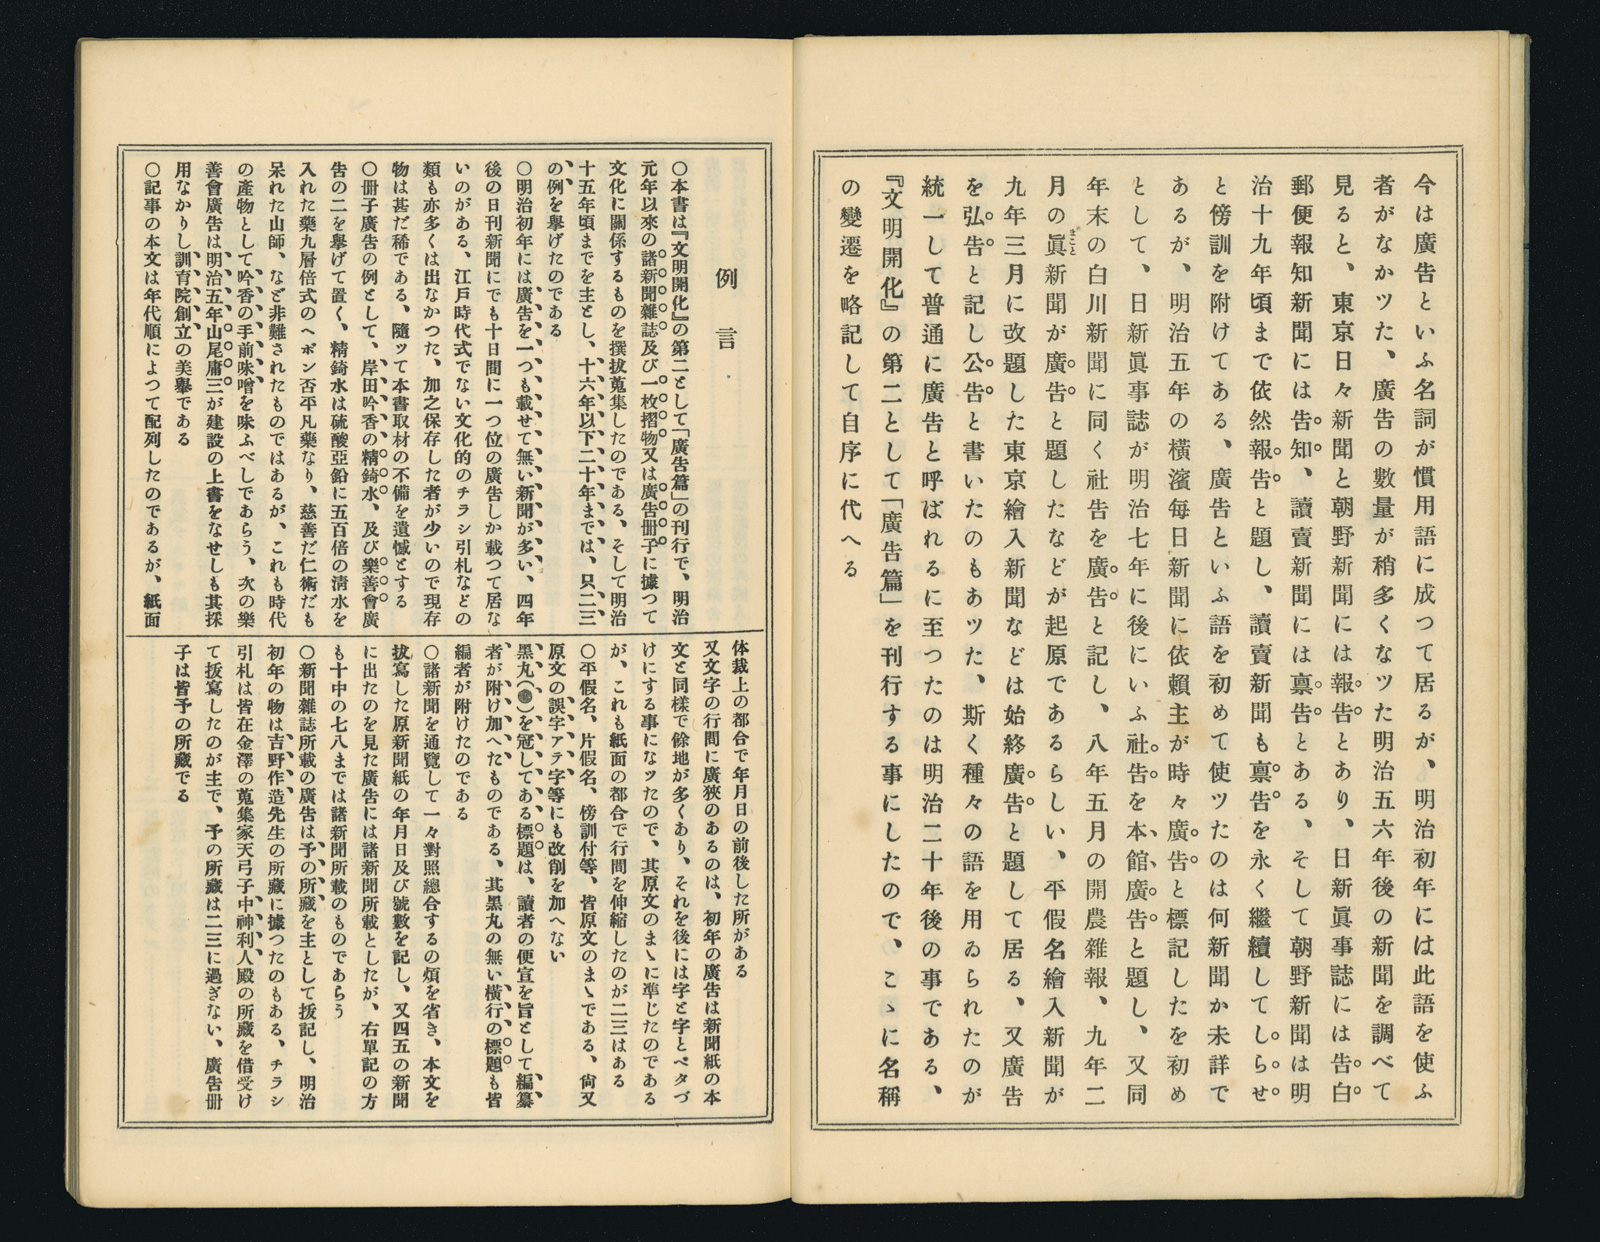 今は廣告といふ名詞が慣用語に成つて居るが、明治初年には此語を使ふ
者がなかツた、廣告の数量が稍多くなツた明治五六年後の新聞を調べて
見ると、東京日々新聞と朝野新聞には報告とあり、日新眞事誌には告白
郵便報知新聞には告知、讀賣新聞には稟告とある、そして朝野新聞は明
治十九年頃まで依然報告と題し、讀賣新聞も稟告を永く繼續してしらせ
と傍訓を附けてある、廣告といふ語を初めて使ツたのは何新聞か未詳で
あるが、明治五年の横濱毎日新聞に依賴主が時々廣告と標記したを初め
として、日新眞事誌が明治七年に後にいふ社告を本館廣告と題し、又同
年末の白川新聞に同く社告を廣告と記し、八年五月の開農雜報、九年二
月の眞新聞が廣告と題したなどが起原であるらしい、平假名繪入新聞が
九年三月に改題した東京繪入新聞などは始終廣告と題して居る、又廣告
を弘告と記し公告と書いたのもあツた、斯く種々の語を用ゐられたのが
統一して普通に廣告と呼ばれるに至つたのは明治二十年後の事である、
『文明開化』の第二として「廣告篇」を刊行する事にしたので、こゝに名稱
の變遷を略記して自序に代へる
例言
〇本書は『文明開化』の第二として「廣告篇」の刊行で、明治
元年以來の諸新聞雜誌及び一枚摺物又は廣告册子に據つて
文化に關係するものを撰拔蒐集したのである、そして明治
十五年頃までを主とし、十六年以下二十年までは、只二三
の例を擧げたのである
〇明治初年には廣告を一つも載せて無い新聞が多い、四年
後の日刊新聞にでも十日間に一つ位の廣告しか載つて居な
いのがある、江戸時代式でない文化的のチラシ引札などの
類も亦多くは出なかつた、加之保存した者が少いので現存
物は甚だ稀である、隨ツて本書取材の不備を遺憾とする
〇册子廣告の例として、岸田吟香の精錡水、及び樂善會廣
告の二を擧げて置く、精錡水は硫酸亞鉛に五百倍の淸水を
入れた藥九層倍式のヘボン否平凡藥なり、慈善だ仁術だも
呆れた山師、など非難されたものではあるが、これも時代
の產物として吟香の手前味噌を味ふべしであらう、次の樂
善會廣告は明治五年山尾庸三が建設の上書をなせしも其採
用なかりし訓育院創立の美擧である
〇記事の本文は年代順によつて配列したのであるが、紙面
体裁上の都合で年月日の前後した所がある
又文字の行間に廣狹のあるのは、初年の廣告は新聞紙の本
文と同樣で餘地が多くあり、それを後には字と字とペタづ
けにする事になツたので、其原文のまゝに準じたのである
が、これも紙面の都合で行間を伸縮したのが二三はある
〇平假名、片假名、傍訓付等、皆原文のまゝである、尙又
原文の誤字アテ字等にも改削を加へない
黑丸(●)を冠してある標題は、讀者の便宣を旨として編纂
者が附け加へたものである、其黑丸の無い橫行の標題も皆
編者が附けたのである
〇諸新聞を通覽して一々對照總合するの煩を省き、本文を
拔寫した原新聞紙の年月日及び號數を記し、又四五の新聞
に出たのを見た廣告には諸新聞所載としたが、右單記の方
も十中の七八までは諸新聞所載のものであらう
〇新聞雜誌所載の廣告は予の所藏を主として拔記し、明治
初年の物は吉野作造先生の所藏に據つたのもある、チラシ
引札は皆在金澤の蒐集家天弓子中神利人殿の所藏を借受け
て拔寫したのが主で、予の所藏は二三に過ぎない、廣告册
子は皆予の所藏でる
まこと